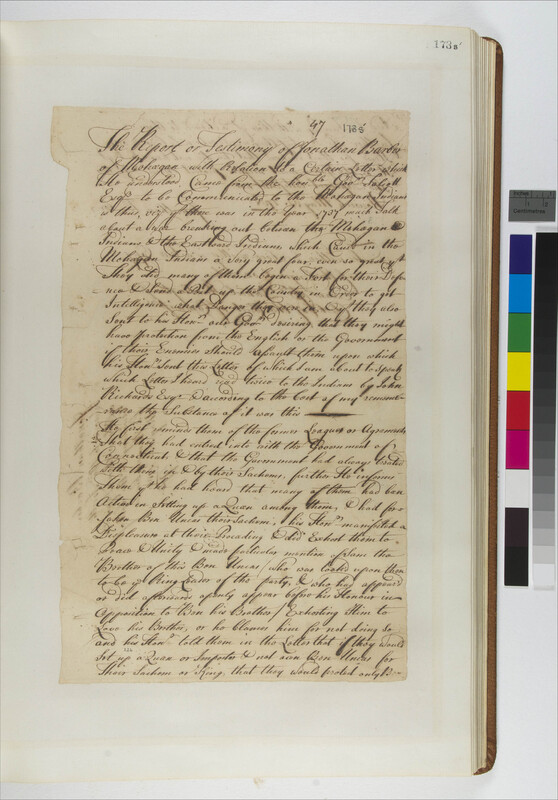 173a
47 1738
The Report or Testimony of Jonathan Barber
of Mohagan with Relation to a Certain Letter which
He understood Came from the honble Govr Talcott
Esqr to be Communicated to the Mohagan Indians
is this, viz
there was in the year 1737 much Talk
about a War breaking out between the Mohagan
Indians & the Eastward Indians which Caus'd in the
Mohagan Indians a very great fear, even so great yt
they did many of them begin a Fort for their Defe
nce & Send a Post up the Country in Order to get
Intelligence what Danger they were in, they also
Sent to his Honr our Govr desiring that they might
have Protection from the English or the Government
if their Enemies Should assault them upon which
his Honr Sent this Letter of which I am about to speak
which Letter I heard read twice to the Indians by John
Richards Esqr & according to the best of my remem
brance the Substance of it was this
He first reminds them of the former Leagues or Agreements
that they had entred into with the Government of
Connecticut & that the Government had always treated
with them by their Sachems, further He informs
them yt he had heard that many of them had been
Active in Setting up a Quan among them, & had for
saken Ben Uncas their Sachem, his Honr manifested a
Displeasure at their Proceeding & did Exhort them to
Peace & Unity & made particular mention of the
Brother of this Ben Uncas, who was looked upon then
to be ye Ring Leader of the party, & who had appeared
or did afterwards openly appear before his Honour in
Opposition to Ben his Brother, Exhorting Them to
Love his Brother, or he blames him for not doing so
and his Honr told them in the Letter that if they would
Set up a Quan or Impostor & not own Ben Uncas for
Their Sachem or King, that they would protect only Ben